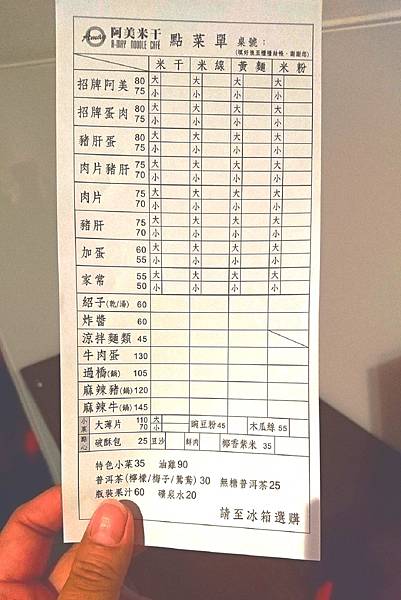 Amay 阿美米干 點菜單 桌號：
A-MAY NOODLE CAFÉ (填好後至櫃檯結帳，謝謝您)
米干 米線 黃麵 米粉
招牌阿美 80 大 大 大 大
75 小 小 小 小
招牌蛋肉 80 大 大 大 大
75 小 小 小 小
豬肝蛋 80 大 大 大 大
70 小 小 小 小
肉片豬肝 75 大 大 大 大
70 小 小 小 小
肉片 75 大 大 大 大
70 小 小 小 小
豬肝 75 大 大 大 大
70 小 小 小 小
加蛋 60 大 大 大 大
55 小 小 小 小
家常 55 大 大 大 大
50 小 小 小 小
紹子(乾/湯) 60
炸醬 60
涼拌麵類 45
牛肉蛋 130
過橋(鍋) 105
麻辣豬(鍋) 120
麻辣牛(鍋) 145
小菜 點心
大薄片 110 大 豌豆粉 45 木瓜絲 55
70 小
破酥包 25 豆沙 鮮肉 椰香紫米 35
特色小菜35 油雞90
普洱茶(檸檬/梅子/鴛鴦) 30 無糖普洱茶25
瓶裝果汁60 礦泉水20
請至冰箱選購